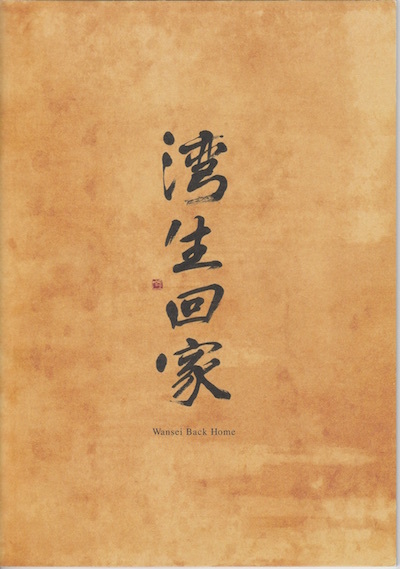 湾生回家
Wansei Back Home